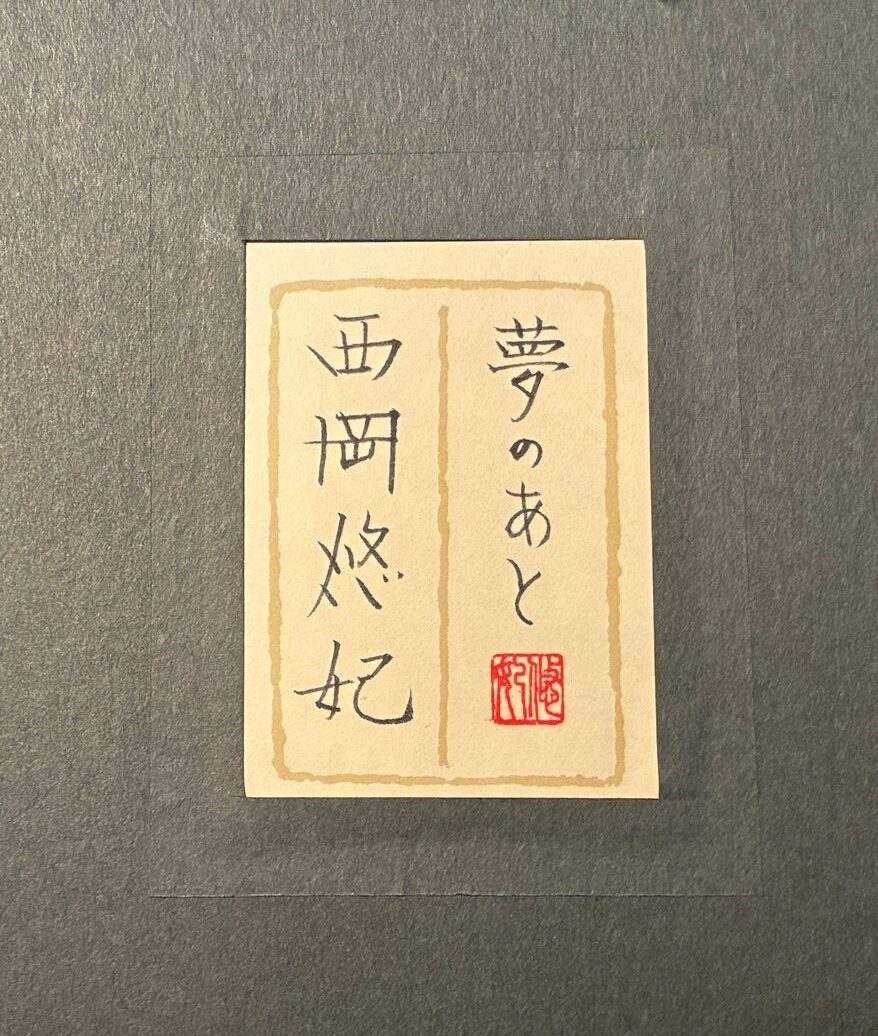 夢のあと
悠妃
西岡悠妃